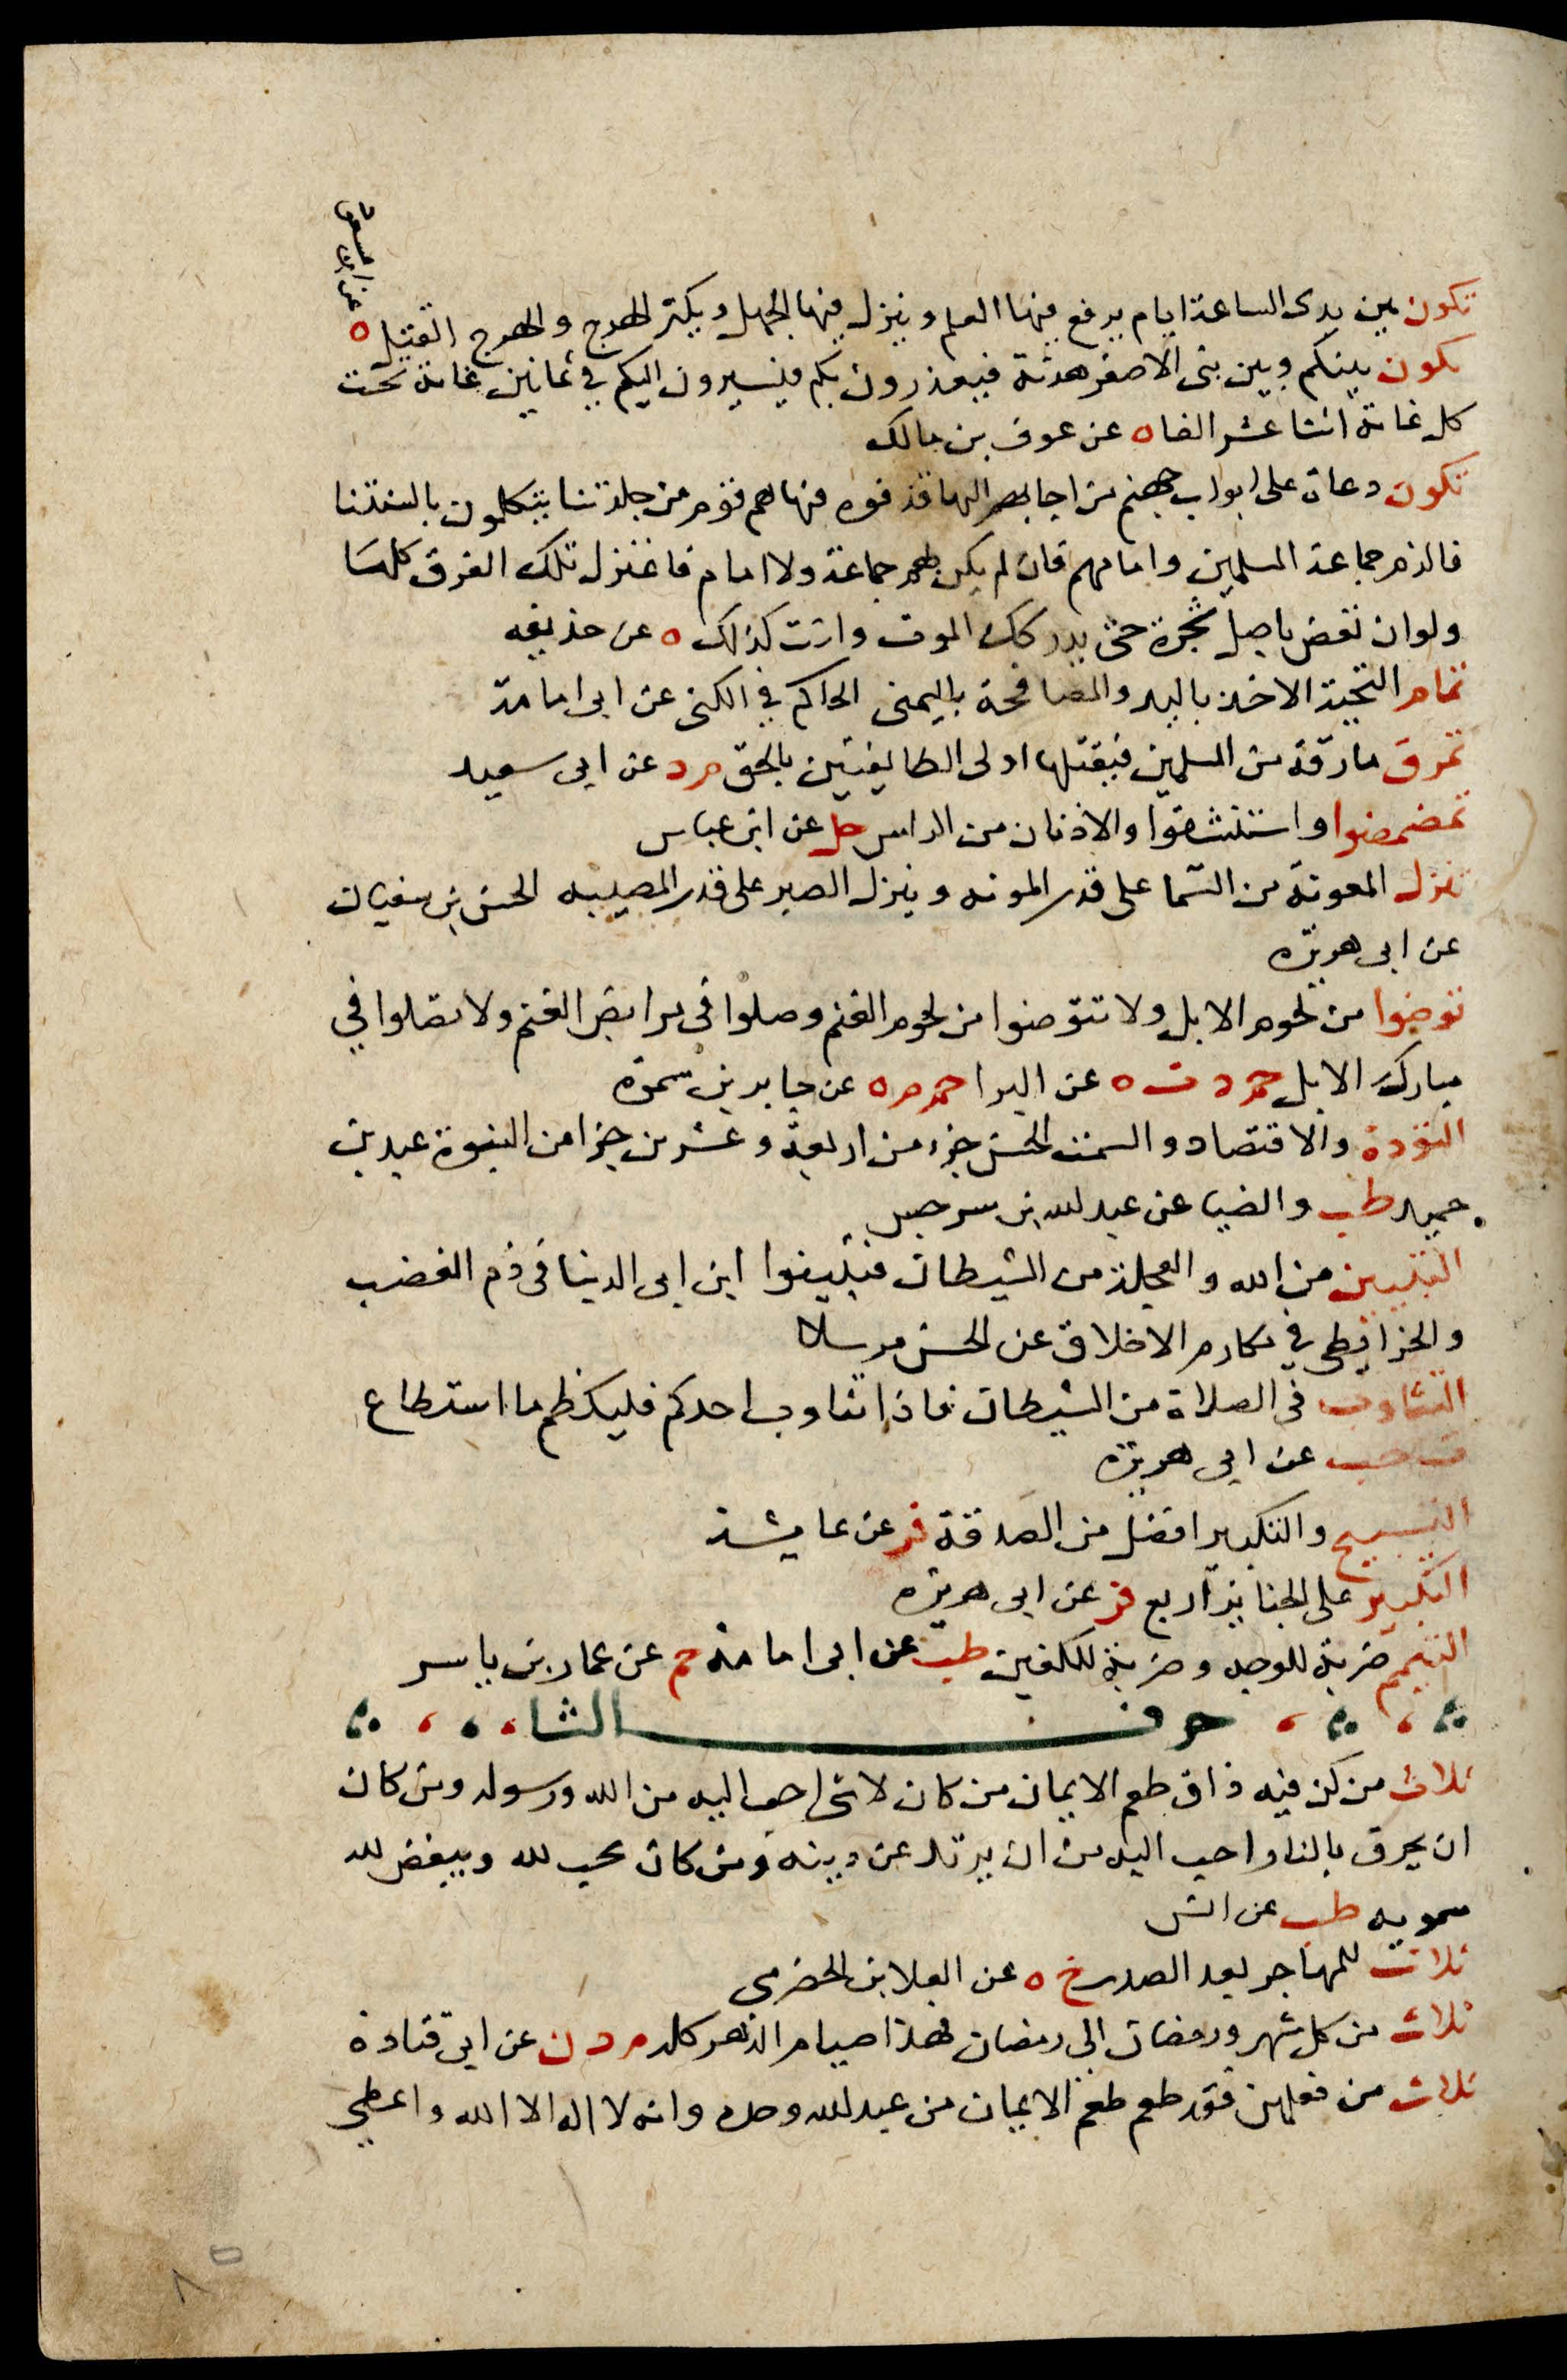 تكون بين يدى الساعة ايام يرفع فيها العلم وينزل فيها الجهل ويكثر الهرج والهرج القتيل ه
عن ابن مسعود
تكون بينكم وبين بنى الاصفر هدنة فيغدرون بكم فيسيرون اليكم في ثمانين غاية تحت
كل غاية اثنا عشر الفا ه عن عوف بن مالك
تكون دعاة على ابواب جهنم من اجابهم اليها قذفوه فيها هم قوم من جلدتنا يتكلمون بالسنتنا
فالزم جماعة المسلمين وامامهم فان لم يكن لهم جماعة ولا امام فاعتزل تلك الفرق كلها
ولو ان تعض باصل شجرة حتى يدركك الموت وانت كذلك ه عن حذيفه
تمام التحية الاخذ باليد والمصافحة باليمنى الحاكم في الكنى عن ابى امامة
تمرق مارقة من المسلمين فيقتلها اولى الطايفتين بالحق م د عن ابى سعيد
تمضمضوا واستنشقوا والاذنان من الراس حل عن ابن عباس
تنزل المعونة من السما على قدر المونه وينزل الصبر على قدر المصيبه الحسن بن سفيان
عن ابى هريره
توضوا من لحوم الابل ولا تتوضوا من لحوم الغنم وصلوا فى مرابض الغنم ولا تصلوا في
مبارك الابل حم د ت ه عن البرا حم م ه عن جابر بن سمرة
التؤدة والاقتصاد والسمت الحسن جزء من اربعة وعشرين جزا من النبوة عبد بن
حميد طب والضيا عن عبد الله بن سرجس
التبيين من الله والعجلة من الشيطان فتبينوا ابن ابى الدنيا فى ذم الغضب
والخرايطى في مكارم الاخلاق عن الحسن مرسلا
التثاوب فى الصلاة من الشيطان فاذا تثاوب احدكم فليكظم ما استطاع
ت حب عن ابى هريره
التسبيح والتكبير افضل من الصدقة فر عن عايشة
التكبير على الجنايز اربع فر عن ابى هريره
التيمم ضربة للوجه وضربة للكفين طب عن ابى امامة حم عن عمار بن ياسر
حرف الثا
ثلاث من كن فيه ذاق طعم الايمان من كان لا شى احب اليه من الله ورسوله ومن كان
ان يحرق بالنار احب اليه من ان يرتد عن دينه ومن كان يحب لله ويبغض لله
سمويه طب عن انس
ثلاث للمهاجر بعد الصدر خ ه عن العلا بن الحضرمى
ثلاث من كل شهر ورمضان الى رمضان فهذا صيام الدهر كله م د ن عن ابى قتادة
ثلاث من فعلهن فقد طعم طعم الايمان من عبد الله وحده وانه لا اله الا الله واعطى